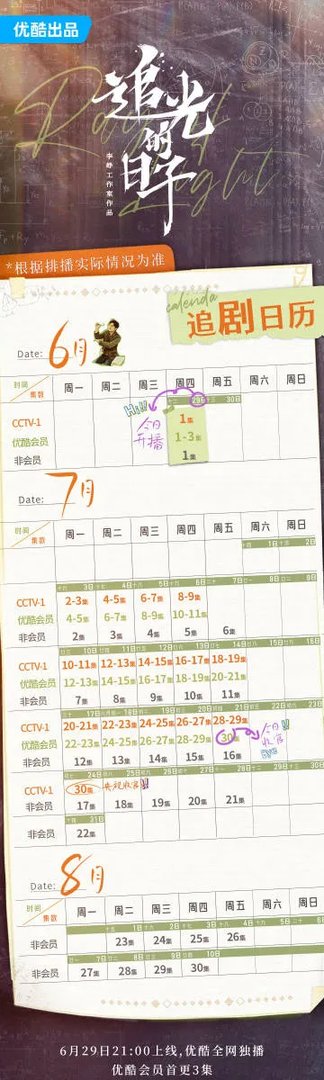 优酷出品
追光的日子
Ray of Light
李峥工作室作品
*根据排播实际情况为准
calenda
追剧日历
Date: 6月
时间 集数 周一 周二 周三 周四 周五 周六 周日
十二 29日 十三 30日
Hi!!
今日开播
CCTV-1 1集
优酷会员 1-3集
非会员 1集
Date: 7月
时间 集数 周一 周二 周三 周四 周五 周六 周日
十四 1日 十五 2日
十六 3日 十七 4日 十八 5日 十九 6日 二十 7日 廿一 8日 廿二 9日
CCTV-1 2-3集 4-5集 6-7集 8-9集
优酷会员 4-5集 6-7集 8-9集 10-11集
非会员 2集 3集 4集 5集 6集
CCTV-1 10-11集 12-13集 14-15集 16-17集 18-19集
优酷会员 12-13集 14-15集 16-17集 18-19集 20-21集
非会员 7集 8集 9集 10集 11集
CCTV-1 20-21集 22-23集 24-25集 26-27集 28-29集
优酷会员 22-23集 24-25集 26-27集 28-29集 30集
今日收官!!
BYE
非会员 12集 13集 14集 15集 16集
CCTV-1 30集 央视收官!!
非会员 17集 18集 19集 20集 21集
十四 31日
非会员 22集
Date: 8月
时间 集数 周一 周二 周三 周四 周五 周六 周日
非会员 23集 24集 25集 26集
非会员 27集 28集 29集 30集
6月29日21:00上线,优酷全网独播
优酷会员首更3集